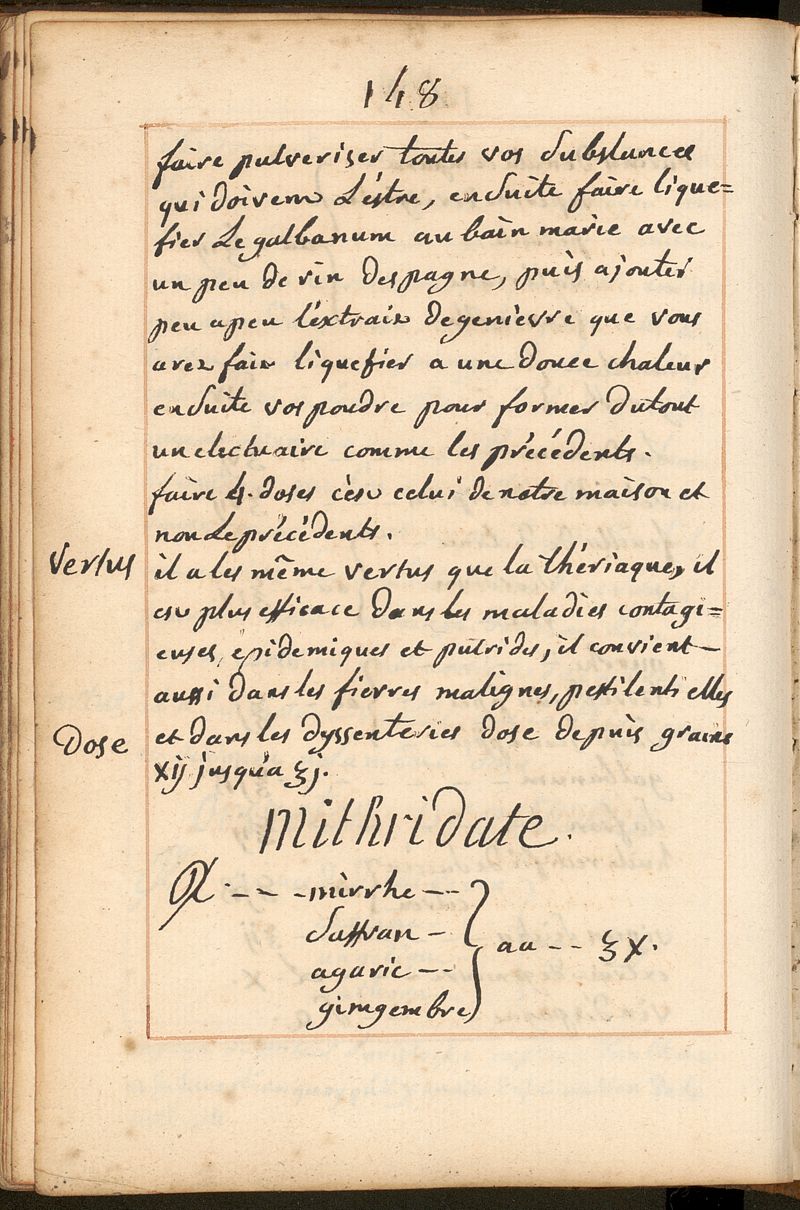 148
faire pulveriser toutes vos substances
qui doivent L'éstre, ensuite faire lique=
fier Le galbanum au bain marie avec
un peu de vin despagne, puis ajouter
peu a peu l'éxtrait de genievre que vous
avez fait liquefier a une douce chaleur
ensuite vos poudre pour former du tout
un electuaire comme les précédents.
faire 4. doses c'est celui de notre maison et
non Le précédents.
Vertus il a les même vertus que la thériaque, il
est plus efficace dans les maladies contagi=
euses, epidemiques et putrides, il convient
aussi dans les fievres malignes, pestilentielles
Dose et dans les dyssenteries dose depuis grains
xij jusqu'a ʒj.
Mithridate.
℞ - - - mirrhe - -
saffran -
agaric - - } aa - - ʒ x.
gimgembre